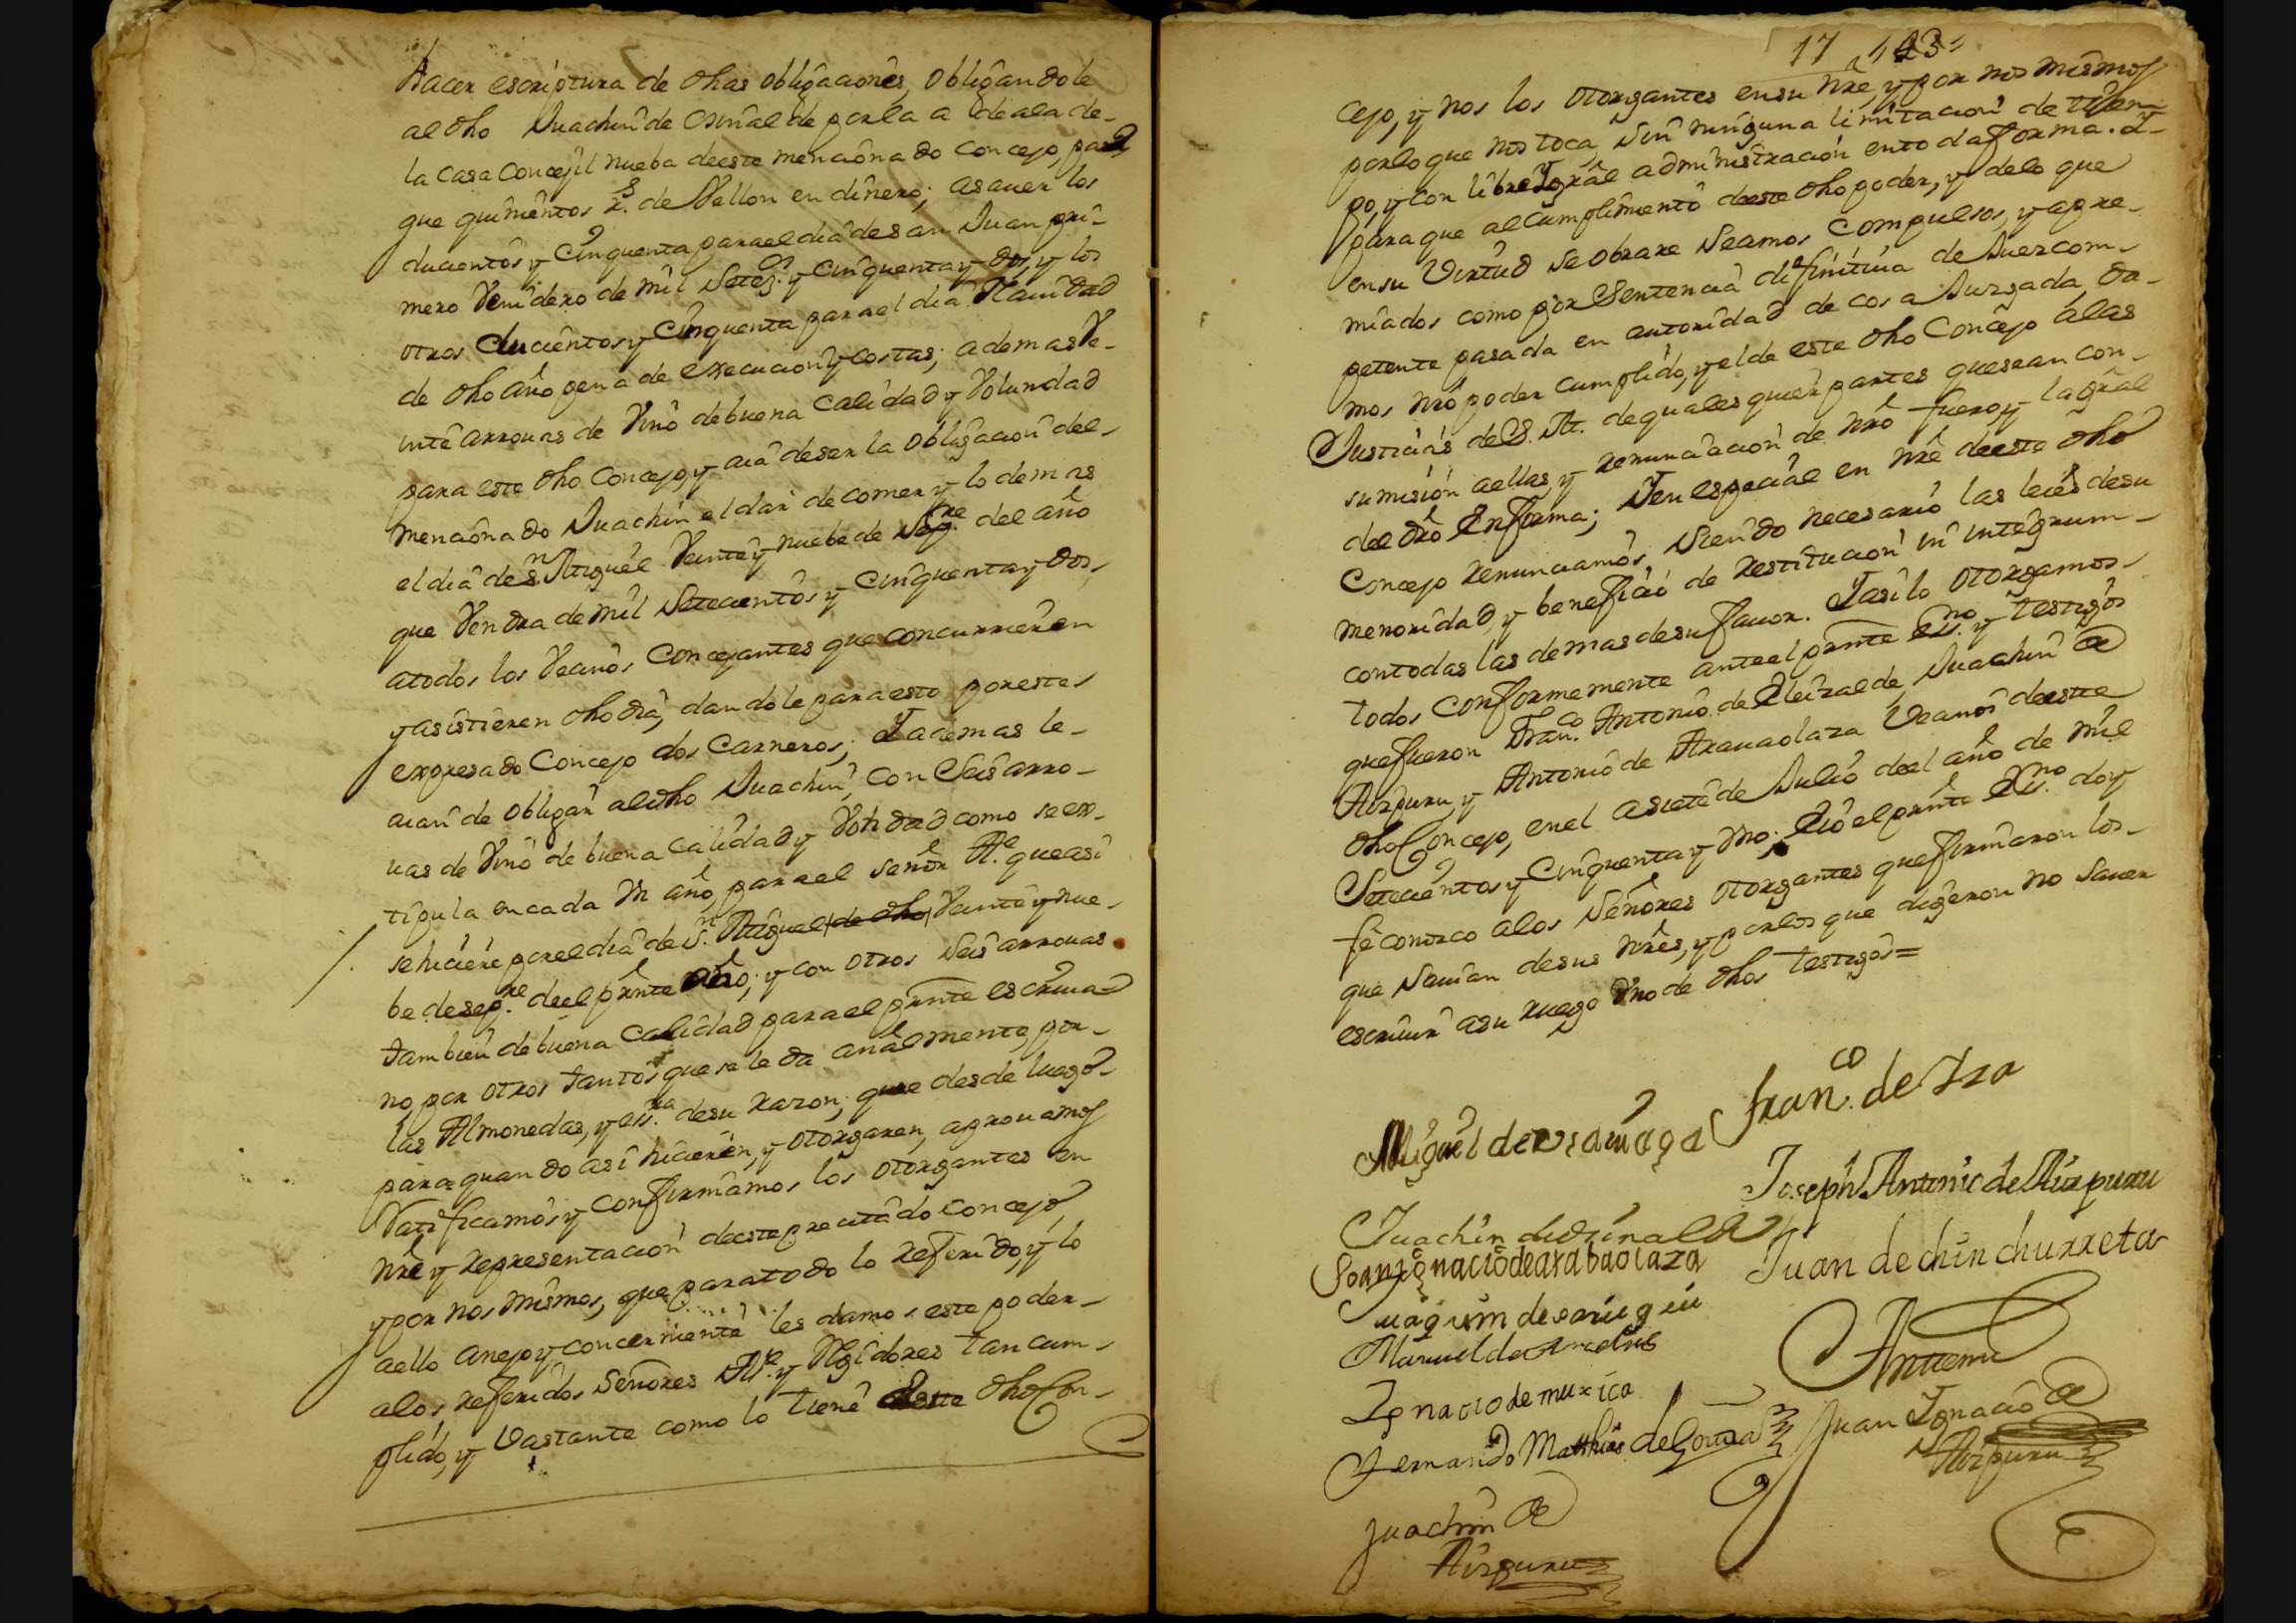 hacer escriptura de dhas obligaciones, obligandole
al dho Juachin de Osinalde por la aldeala de
la casa Concejil nueba de este mencionado concejo, pa
gue quinientos rs. de Vellon en dinero; asauer los
ducientos y Cinquenta para el dia de san Juan pri-
mero Venidero de mil Setezos. y cinquenta y dos, y los
otros ducientos y Cinquenta para el dia Nauidad
de dho año pena de execucion y costas; ademas Ve-
inte arrouas de Vino de buena calidad y Voluntad
para este dho Concejo, y aia de ser la obligacion del
mencionado Juachin el dar de comer y lo demas
el dia de Sn. Miguel Veinte y nuebe de Sepre. del año
que Vendra de mil Setecientos y Cinquenta y dos,
a todos los Vecinos Concejantes que concurrieren
y asistieren dho dia, dandole para esto por este
expresado Concejo dos Carneros; Y ademas le
aian de obligar al dho Juachin, con Seis arro-
uas de Vino de buena calidad y Votidad como se es-
tipula en cada Vn año, para el señor Ale. que asi
se hiciere por el dia de Sn. Miguel de dho Veinte y nue-
be de sepre. de el prnte año; y con otros Seis arrouas
tambien de buena Calidad para el prnte escriua-
no, por otros tantos que se le da añalmente, por
las Almonedas, y essra. de su razon; que desde luego
para quando asi hicieren, y otorgaren, aprouamos
Ratificamos y confirmamos los otorgantes en
nre. y representacion de este precitado concejo
y por nos mismos, que para todo lo referido, y lo
a ello anejo y concerniente les damos este poder
a los referidos Señores Ale. y Regidores tan cum-
plido, y Vastante como lo tiene este dho Con-
17 143
cejo, y nos los otorgantes en su nre, y por nos mismos
por lo que nos toca, sin ninguna limitacion de tiem-
po, y con libre y gral administracion en toda forma. Y
para que al cumplimiento de este dho poder, y de lo que
en su Virtud se obrare Seamos compulsos, y apre-
miados como por Sentencia difinitiua de Juez com-
petente pasada en autoridad de cosa Juzgada, da-
mos nro poder cumplido, y el de este dho Concejo a las
Justicias de S. M. de quales quier partes que sean con
sumision a ellas, y renunciacion de nro fuero, y la gral
del dro en forma; Y en especial en nre de este dho
Concejo renunciamos, Siendo necesario las leies de su
menoridad y beneficio de restitucion in integrum
con todas las demas de su fauor. Y asi lo otorgamos
todos conformemente ante el prnte essno. y testigos
que fueron Franco. Antonio de Eleizalde, Juachin de
Aizpuru, y Antonio de Arauaolaza Vecinos de este
dho Concejo, en el a siete de Julio de el año de mil
Setecientos y Cinquenta y Vno; E io el prnte essno. doy
fe conozco a los Señores otorgantes que firmaron los
que sauian de sus nres, y por los que digeron no sauer
escriuir a su ruego Vno de dhos testigos=
Miguel de
Franco. de Iza
Joseph Antonio de Aizpuru
Juachin de Osinalde
Juan de chinchurreta
Joan Ignacio de arabaolaza
Juaquim de
Manuel de
Ignacio de muxica
Fernando Mathias de Gorria
Antemi
Juan Ignacio de
Aizpuru
Juachin de
Aizpuru